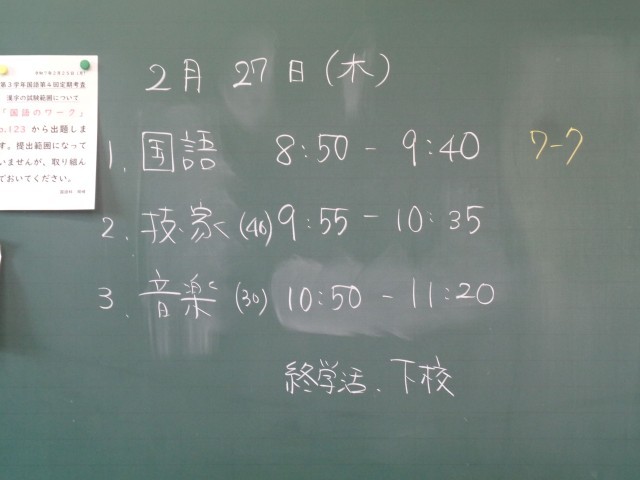 2月 27日(木)
1. 国語 8:50 - 9:40 ワ-ク
2. 技・家(40) 9:55 - 10:35
3. 音楽(30) 10:50 - 11:20
終学活、下校
第3学年国語第4回定期考査
漢字の試験範囲について
「国語のワーク」
p.123 から出題しま
す。提出範囲になって
いませんが、取り組ん
でおいてください。